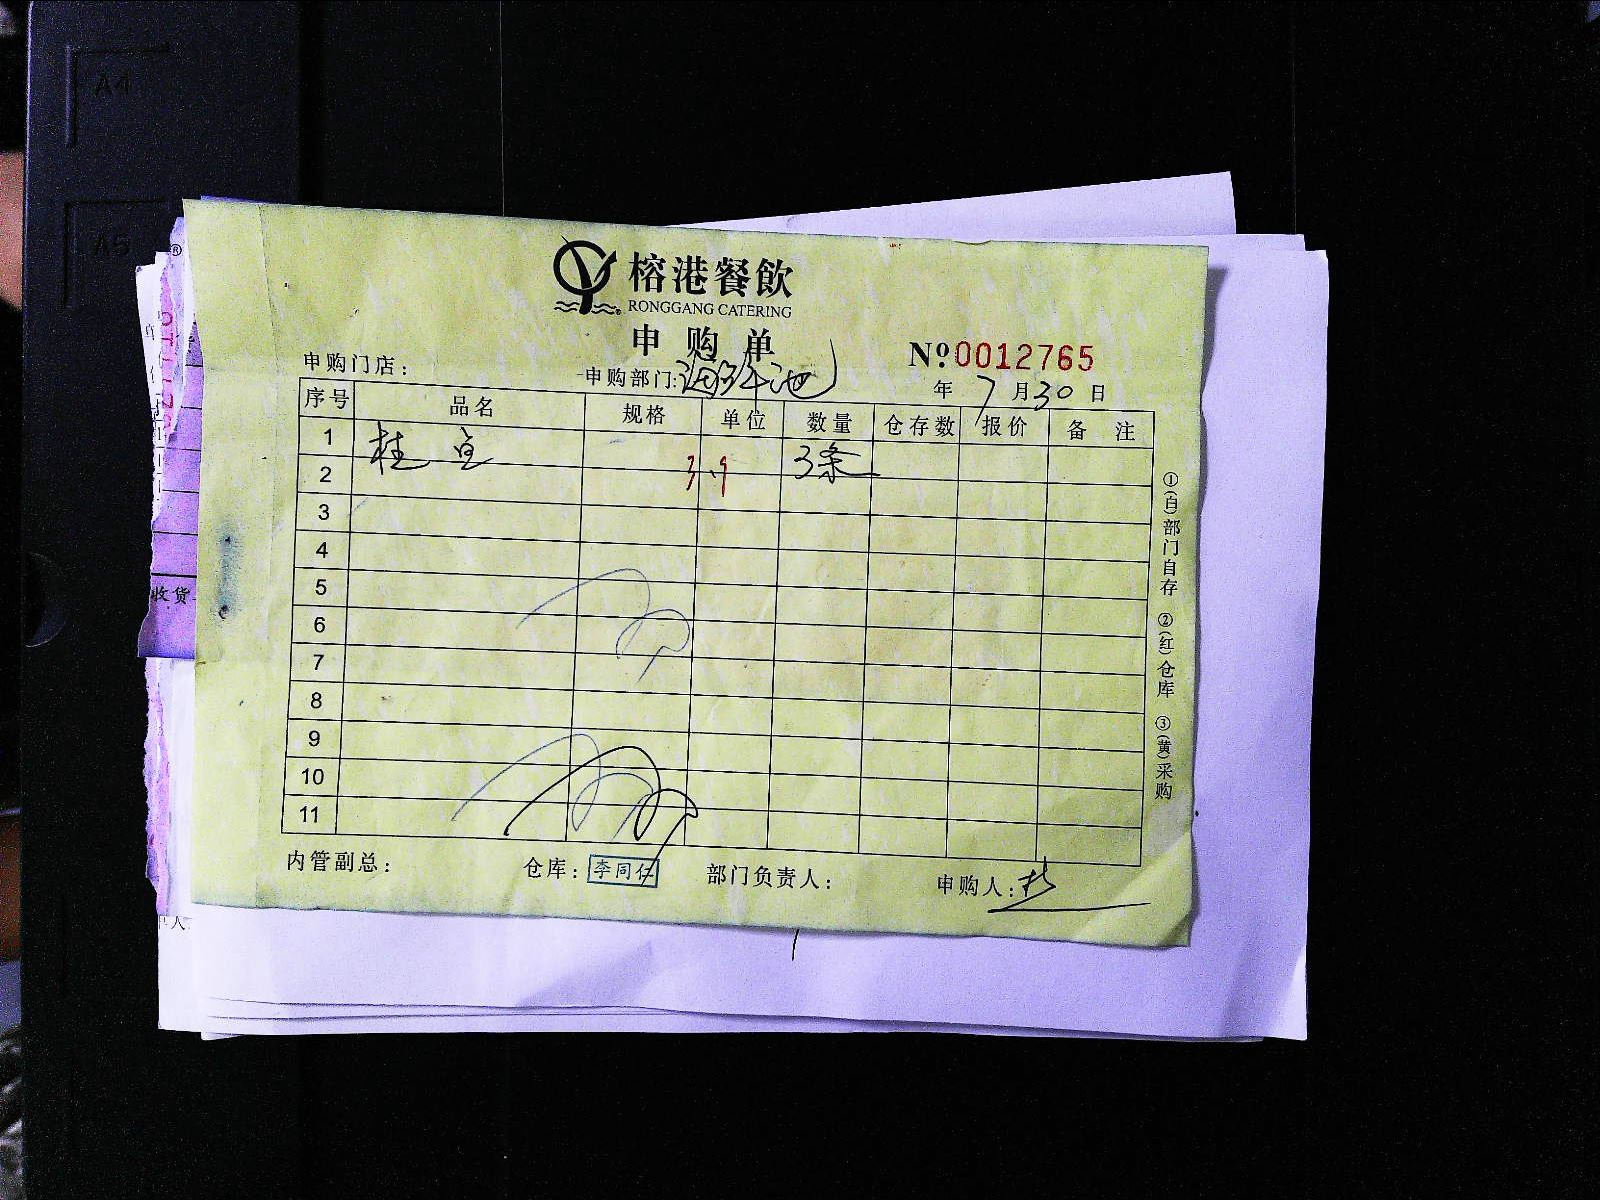 A4
A5
榕港餐飲
RONGGANG CATERING
申购单
№0012765
申购门店：
申购部门:海鲜池
年 7 月 30 日
序号 品名 规格 单位 数量 仓存数 报价 备 注
1 桂鱼 3.9 3条
2
3
4
5
6
7
8
9
10
11
①(白)部门自存 ②(红)仓库 ③(黄)采购
内管副总： 仓库：李同仁 部门负责人： 申购人：
收货